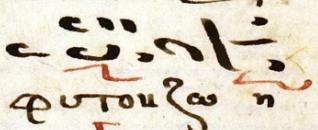 φυτουζω η